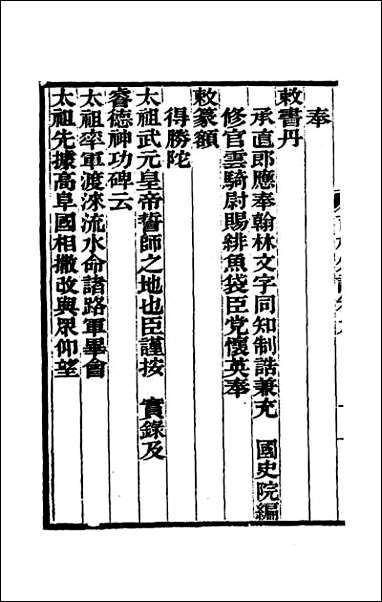 奉
敕書丹
承直郎應奉翰林文字同知制誥兼充　國史院編
修官雲騎尉賜緋魚袋臣党懷英奉
敕篆額
得勝陀
太祖武元皇帝誓師之地也臣謹按　實錄及
睿德神功碑云
太祖率軍渡淶流水命諸路軍畢會
太祖先據高阜國相撒改與眾仰望